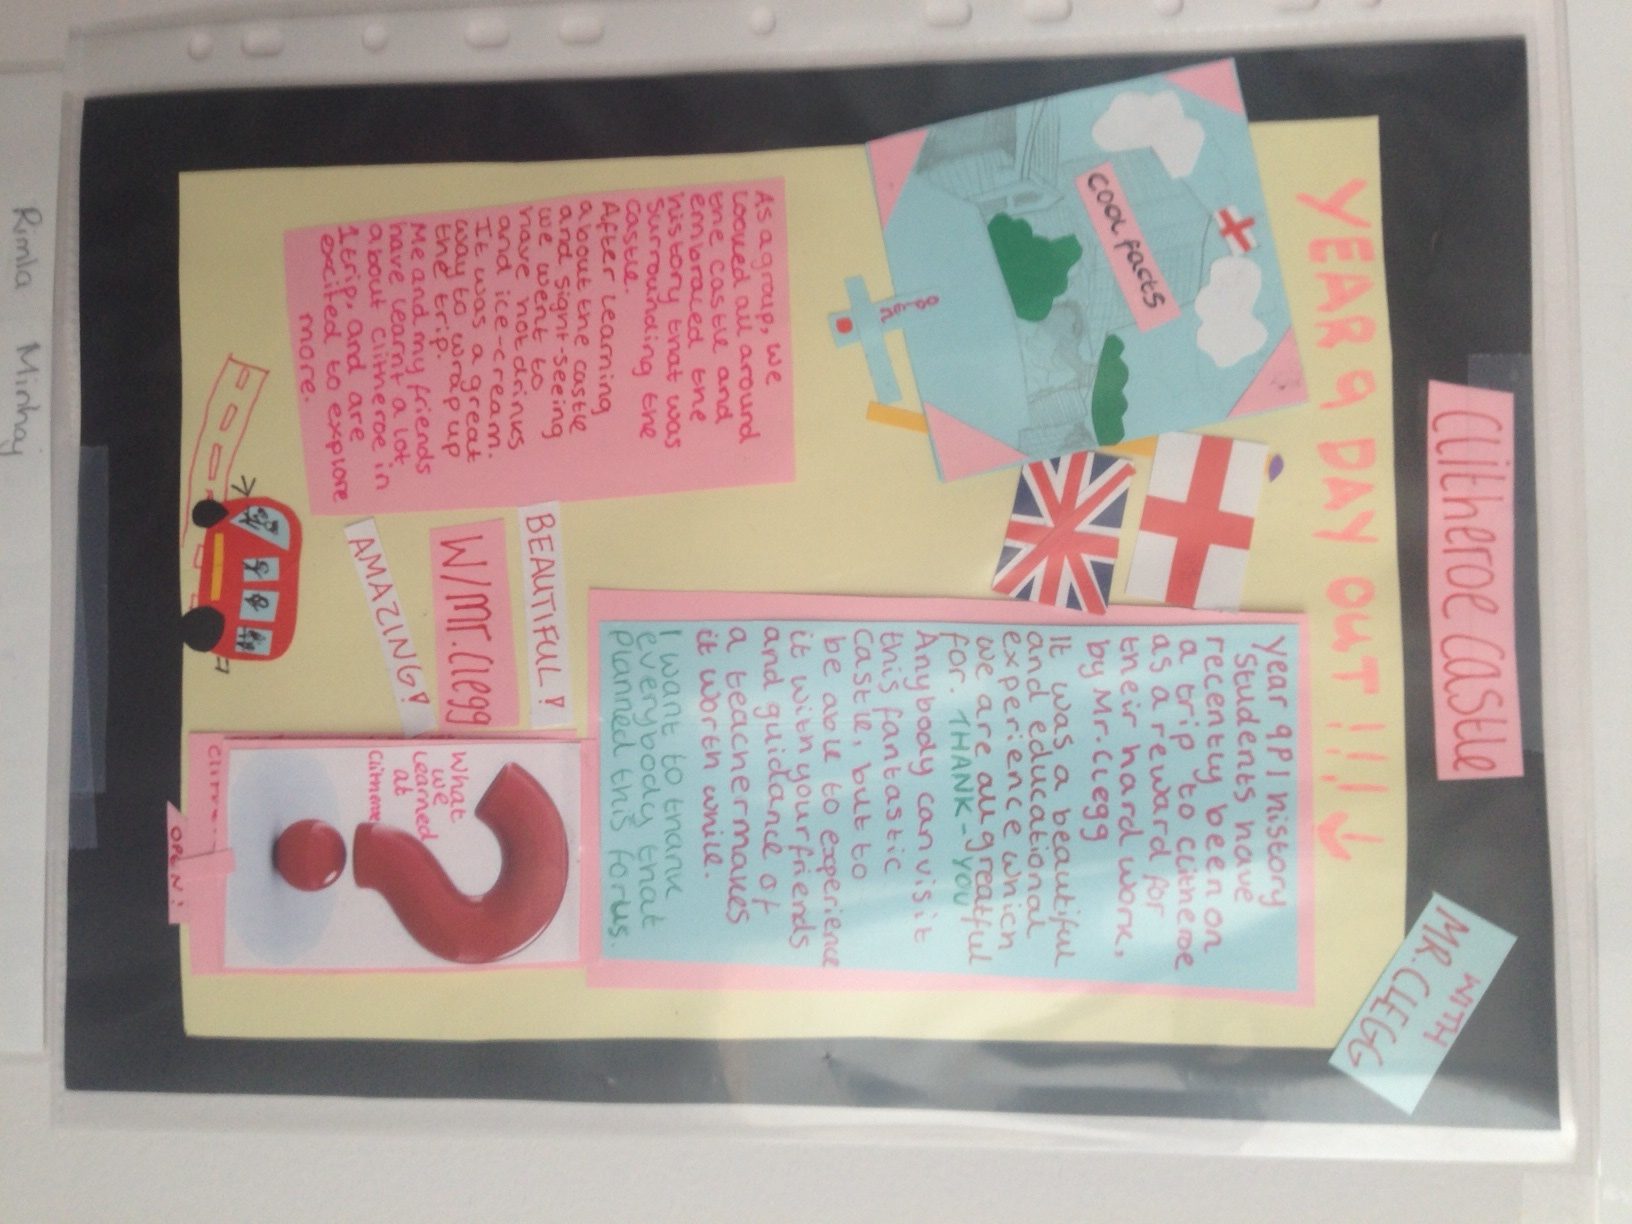 Clitheroe Castle
WITH
MR.CLEGG
YEAR 9 DAY OUT!!!
COOL FACTS
Year 9P1 history
students have
recently been on
a trip to clitheroe
as a reward for
their hard work,
by Mr.Clegg
It was a beautiful
and educational
experience which
we are all greatful
for. THANK-YOU
Anybody can visit
this fantastic
castle, but to
be able to experience
it with your friends
and guidance of
a teacher makes
it worth while.
I want to thank
everybody that
planned this for us.
As a group, we
looked all around
the castle and
embraced the
history that was
surrounding the
castle.
After learning
about the castle
and sight-seeing
we went to
have hot drinks
and ice-cream.
It was a great
way to wrap up
the trip.
Me and my friends
have learnt a lot
about clitheroe in
1 trip, and are
excited to explore
more.
BEAUTIFUL!
W/Mr.Clegg
AMAZING!
What
we
learned
at
OPEN!
Rimla Minhaj